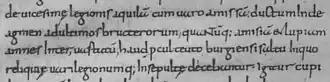 deuicesimę legionis aquilā cum uaro amissā; ductum inde
agmen adultimos bructerorum, quantūq; amisiā & lupiam
amnes inter, uastatū, haud procul teutoburgiensi saltu in quo
reliquiae uari legionumq; insepultę dicebantur Igitur cupi